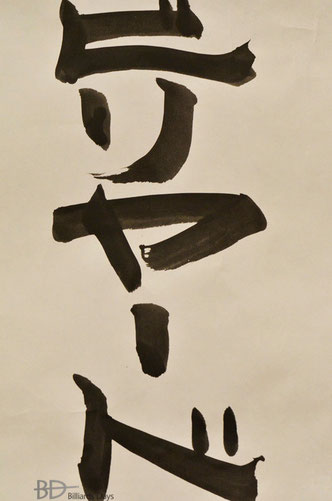 ビリヤード
BD
Billiards Days